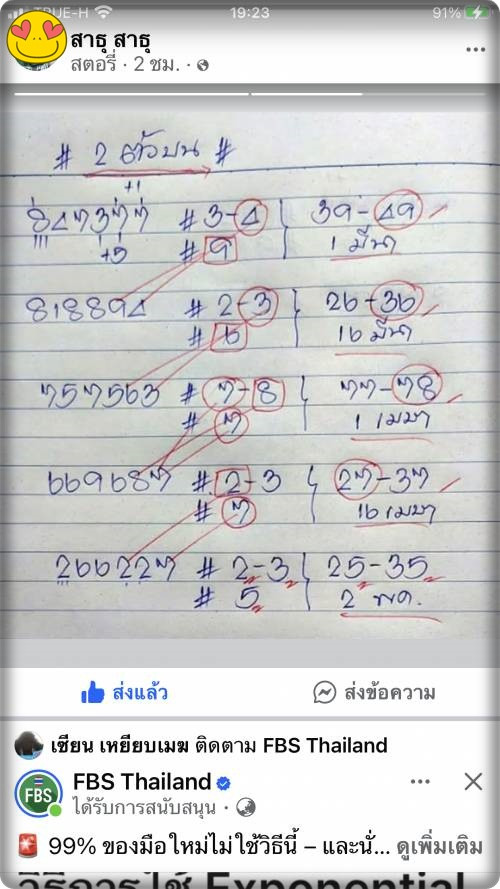 TRUE-H 19:23 91%
สาธุ สาธุ
สตอรี่ · 2 ชม. ·
# 2 ตัวบน #
+1
847377 #3-4 39-49
+5 #9 1 มีนา
818894 #2-3 26-36
#6 16 มีนา
757563 #7-8 77-78
#7 1 เมษา
669687 #2-3 27-37
#7 16 เมษา
266227 #2-3 25-35
#5 2 พค.
ส่งแล้ว ส่งข้อความ
เซียน เหยียบเมฆ ติดตาม FBS Thailand
FBS FBS Thailand
ได้รับการสนับสนุน ·
99% ของมือใหม่ไม่ใช้วิธีนี้ – และนั่... ดูเพิ่มเติม
วิธีการใช้ Exponential